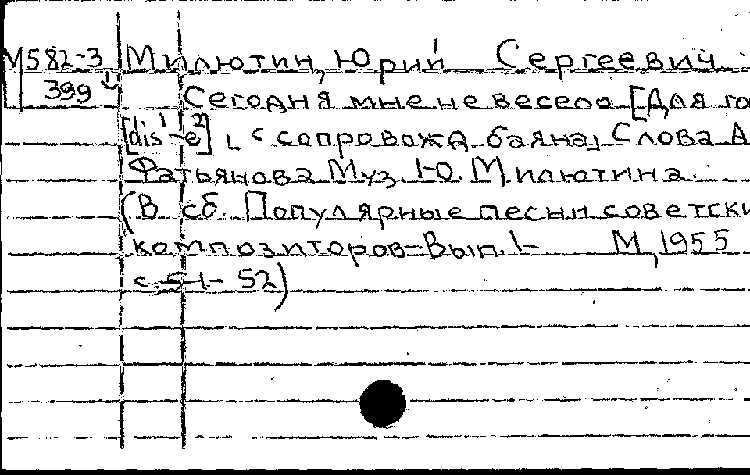 М582-3 Милютин, Юрий Сергеевич
399 Сегодня мне не весело [Для го
[dis¹-e²] с сопровожд. баяна] Слова А
Фатьянова Муз. Ю. Милютина.
(В сб. Популярные песни советски
композиторов-Вып. 1- М, 1955
с. 51- 52)